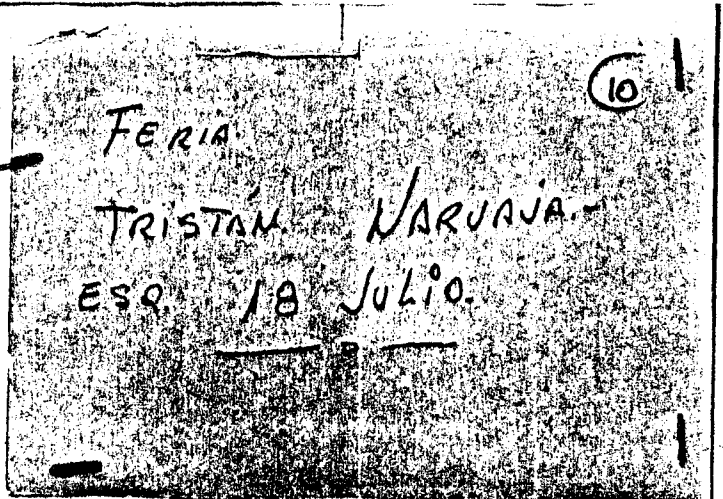 10
FERIA
TRISTÁN. NARVAJA.-
ESQ. 18 JULIO.